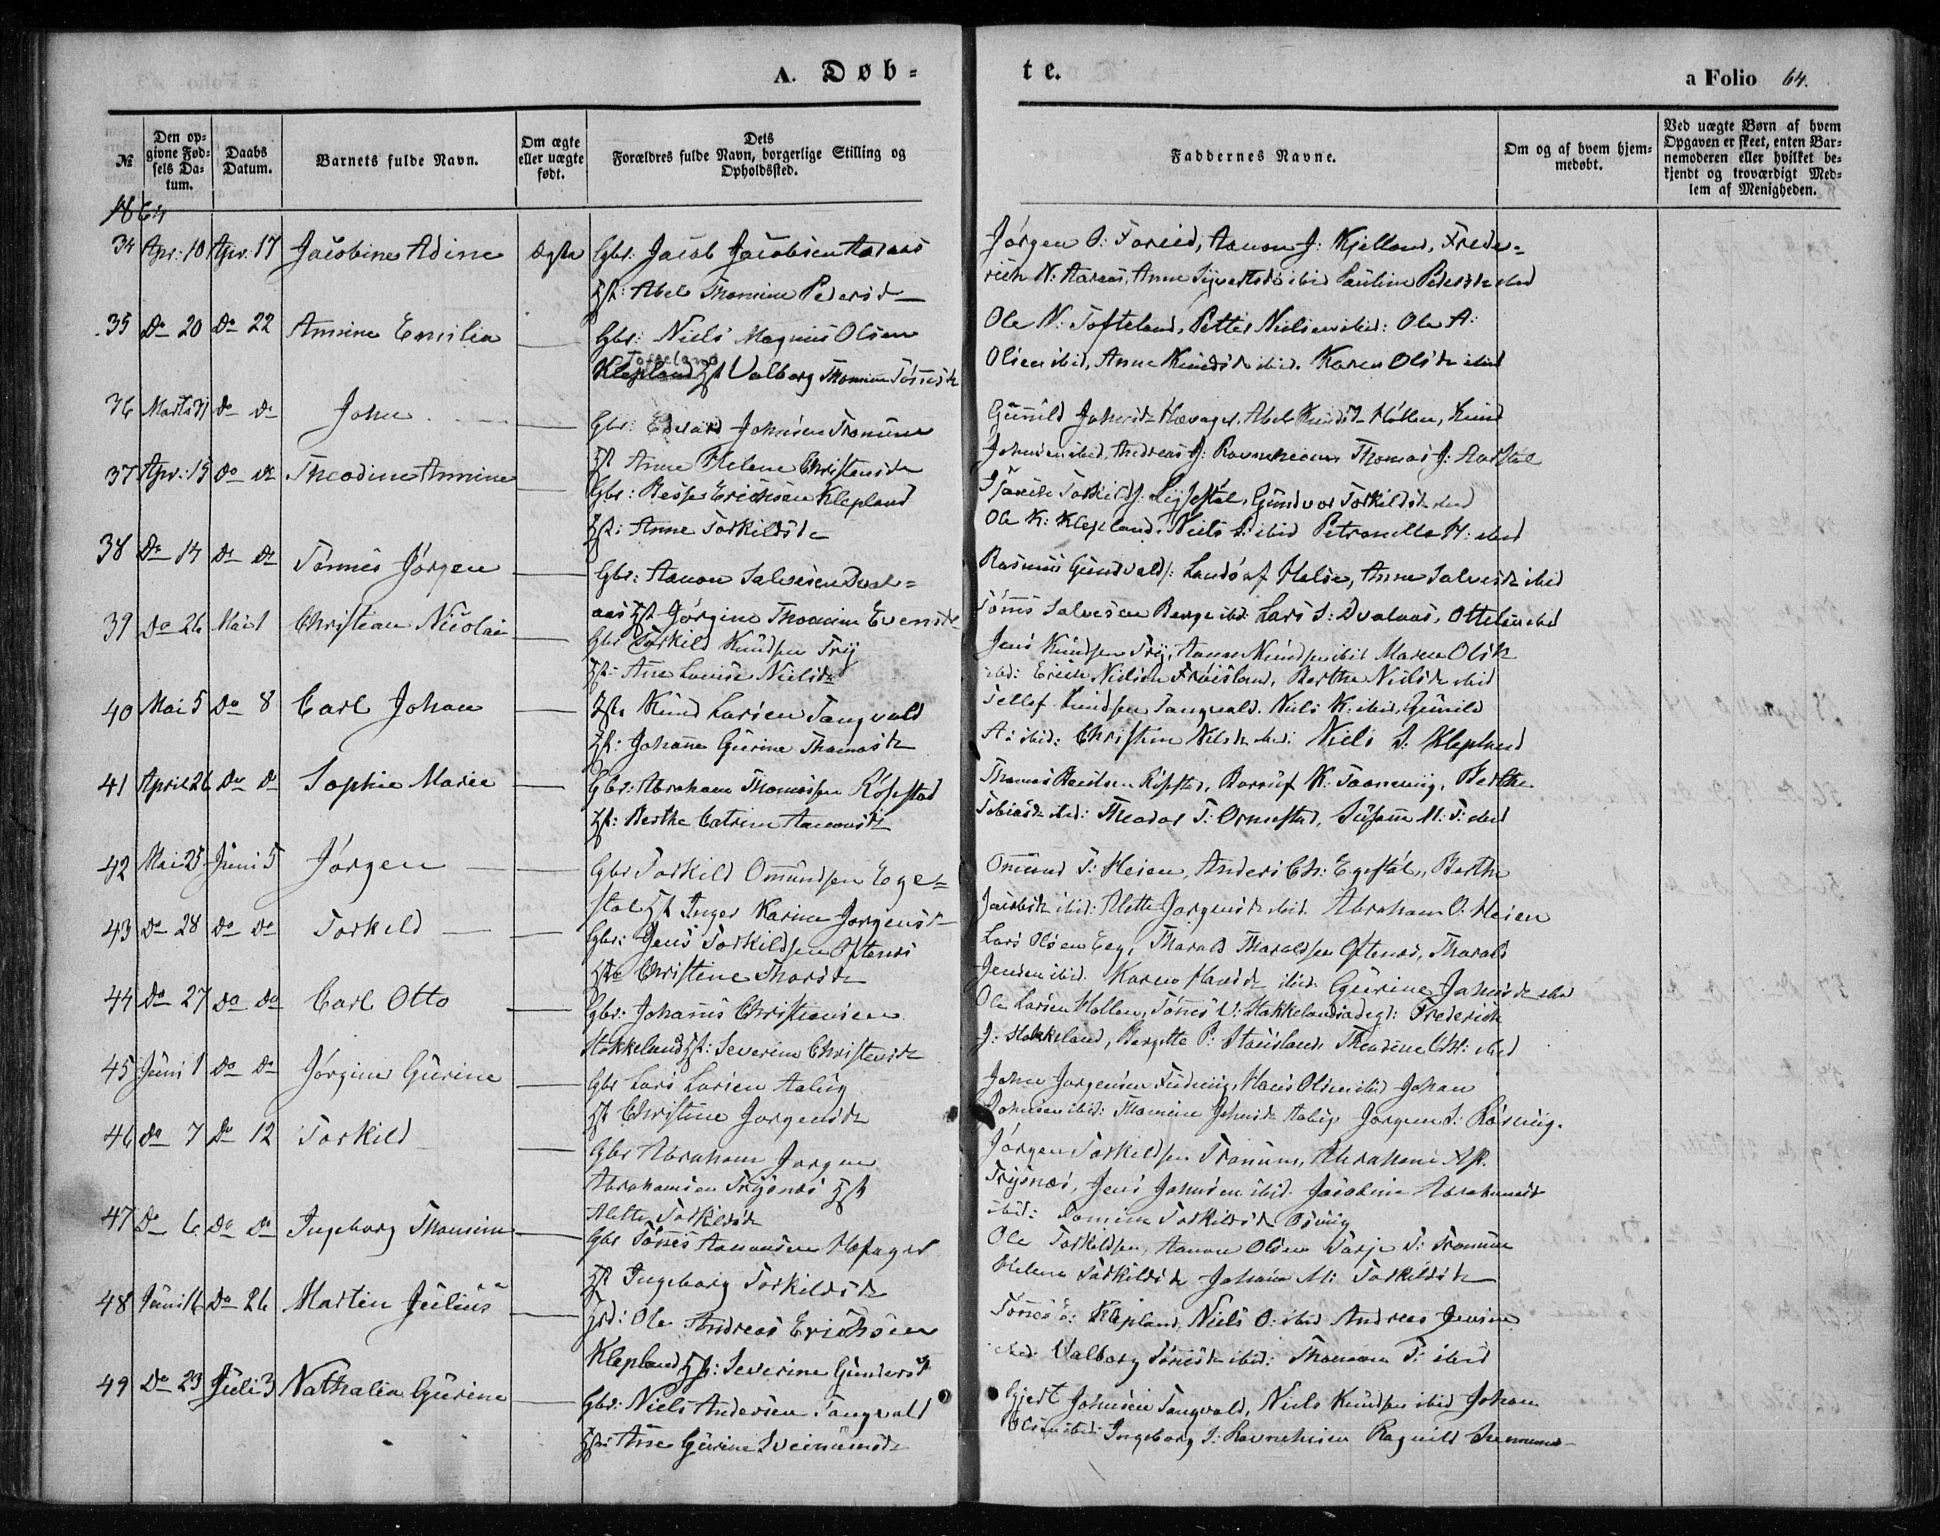 A. Døb-
te.
a Folio 64.
№
Den opgivne Fødsels Datum.
Daabs Datum.
Barnets fulde Navn.
Om ægte eller uægte født.
Dets Forældres fulde Navn, borgerlige Stilling og Opholdssted.
Faddernes Navne.
Om og af hvem hjemmedøbt.
Ved uægte Børn af hvem Opgaven er skeet, enten Barnemoderen eller hvilket bekjendt og troværdigt Medlem af Menigheden.
1864
34 Apr: 10 Apr. 17 Jacobine Adine Ægte Gbr: Jacob Jacobsen Aaraas
Hst: Abel Thomine Pedersd
Jørgen Aanon J: Kjelland, Frede-
rich N: Aaraas, Anne ibid Pauline Pedersd ibid
35 Do 20 Do 22 Annine Emilia Gbr: Niels Magnus Olsen
Tofteland
Klepland Hst Valborg Thomine Tönnesd
Ole N: Tofteland, Petter Nielsen ibid: Ole A:
Olsen ibid, Anne Knudsd ibid. Karen Olsd ibid
36 Marts 31 do do John Gbr: Edvard Johnsen Tronum
Hst Anne Helene Christensd
Gunild Johnsd Hævager, Abel Knudsd Hollen, Knud
Johnsen ibid, Andreas J: Ravneheien Thomas J: Aarstøl
37 Apr: 15 do do Theodine Annine Gbr: Besse Erichsen Klepland
Hst: Anne Torkildsd
Torkilds: Gundvor Torkildsd ibid
Ole K: Klepland, Niels ibid Petronelle H: ibid
38 Do 14 Do do Tönnes Jørgen Gbr: Aanon Salvesen Dval-
aas Hst Jørgine Thomine Evensd
Rasmus Gundvalds: Landøaf Halse, Anne Salvesd ibid
Tönes Salvesen Berge ibid: Lars S: Dvalaas, ibid
39 Do 26 Mai 1 Christian Nicolai Gbr Torkild Knudsen Try
Hst: Ane Louise Nielsd
Jens Knudsen Try, Aanon Knudsen ibid Maren Olsd
ibid: Erich Nielsen Frøisland, Berthe Nielsd ibid
40 Mai 5 Do 8 Carl Johan Knud Larsen Tangvald
Hst: Johane Gurine Thomasd
Tellef Knudsen Tangvald. Niels K. ibid, Gunild
A: ibid: Christine Nilsd ibid: Niels S: Klepland
41 April 26 Do Do Sophie Marie Gbr: Abraham Thomassen Röpstad
Hst: Berthe Catrine Aanonsd
Thomas Röpstad, K. Berthe
Tobiasd ibid: Theodor T: Ormestad, Susanne M: T: ibid
42 Mai 25 Juni 5 Jørgen Gbr Torkild Omundsen Ege-
støl Hst Inger Karine Jørgensd
Omund T: Heien, Anders Ch: Egestøl, Berthe
Jacobsd ibid: Mette Jørgensd ibid. Abraham O: Heien
43 Do 28 Do Do Torkild Gbr: Jens Torkildsen Oftenes
Hst Christine Thorsd
Lars Olsen Eeg, Tharald Tharaldsen Oftenes, Tharald
Jensen ibid. Karen Hansd ibid: Gurine Jansd ibid
44 Do 27 Do Do Carl Otto Gbr: Johannes Christiansen
Stokkeland Hst: Severine Christensd
Ole Larsen Hollen, Tönnes Frederich
J: Stokkeland, Bergitte P: Stausland, Theodine ibid
45 Juni 1 Do Do Jørgine Gurine Gbr Lars Larsen Aabug
Hst Christine Jørgensd
John Jørgensen Hans Olsen ibid Johan
Johnsen ibid: Thomine Johnsd Aabug Jørgen
46 do 7 Do 12 Torkild Gbr Abraham Jørgen
Abrahamsen Trysnes Hst
Alette Torkildsd
Jørgen Torkildsen Tronum, Abraham
Trysnes, Jens Johnsen ibid. Jacobine Abrahamsd
ibid: Tomine Torkildsd
47 Do 6 Do Do Ingeborg Thomine Gbr Tönnes Aanonsen Hævager
Hst Ingeborg Torkildsd
Ole Torkildsen, Aanon Olsen Tarje T: Tronum
Helene Torkildsd Johane M: Torkildsd
48 Juni 16 Do 26 Martin Julius Ole Andreas Erichsen
Klepland Hst: Severine Gundersd
Tönnes E: Klepland, Niels O: ibid Andreas Jensen
ibid Valborg Tönnesd ibid: T: ibid
49 Do 23 Juli 3 Nathalia Gurine Gbr: Niels Andersen Tangvald
Hst: Ane Gurine
Gjert Johnsen Tangvald, Niels Knudsen ibid Johan
Olsen ibid: Ingeborg J: Ravneheien Ragnild